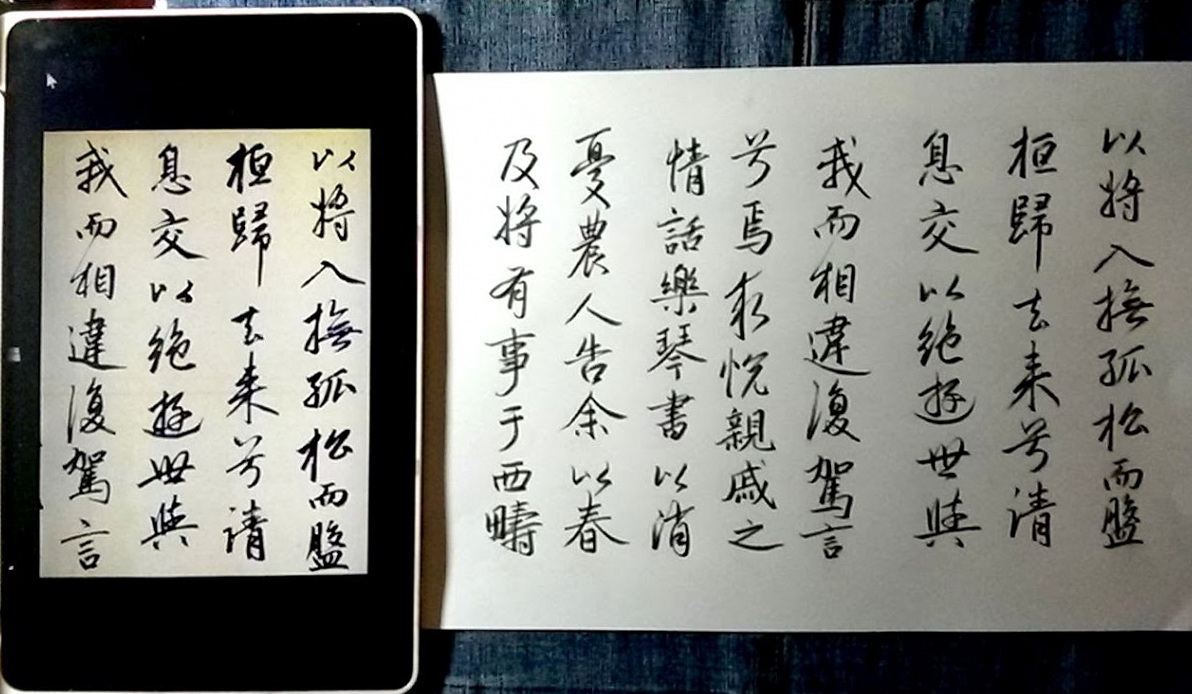 以将入撫孤松而盤
桓歸去来兮請
息交以絶遊世與
我而相違復駕言
兮焉求悦親戚之
情話樂琴書以消
憂農人告余以春
及将有事于西疇
以将入撫孤松而盤
桓歸去来兮請
息交以絶遊世與
我而相違復駕言